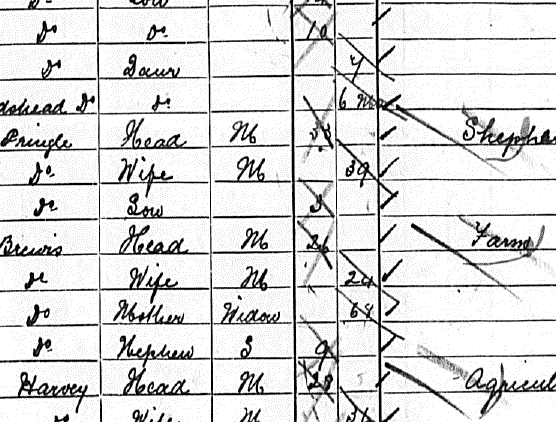 Do Do 10
Do Daur 7
dshead Do Do 6 Mo
Pringle Head M 33 Shephe
Do Wife M 39
Do Son 3
Brewis Head M 26 Farm
Do Wife M 24
Do Mother Widow 68
Do Nephew S 9
Harvey Head M 28 Agricul
Do Wife M 31